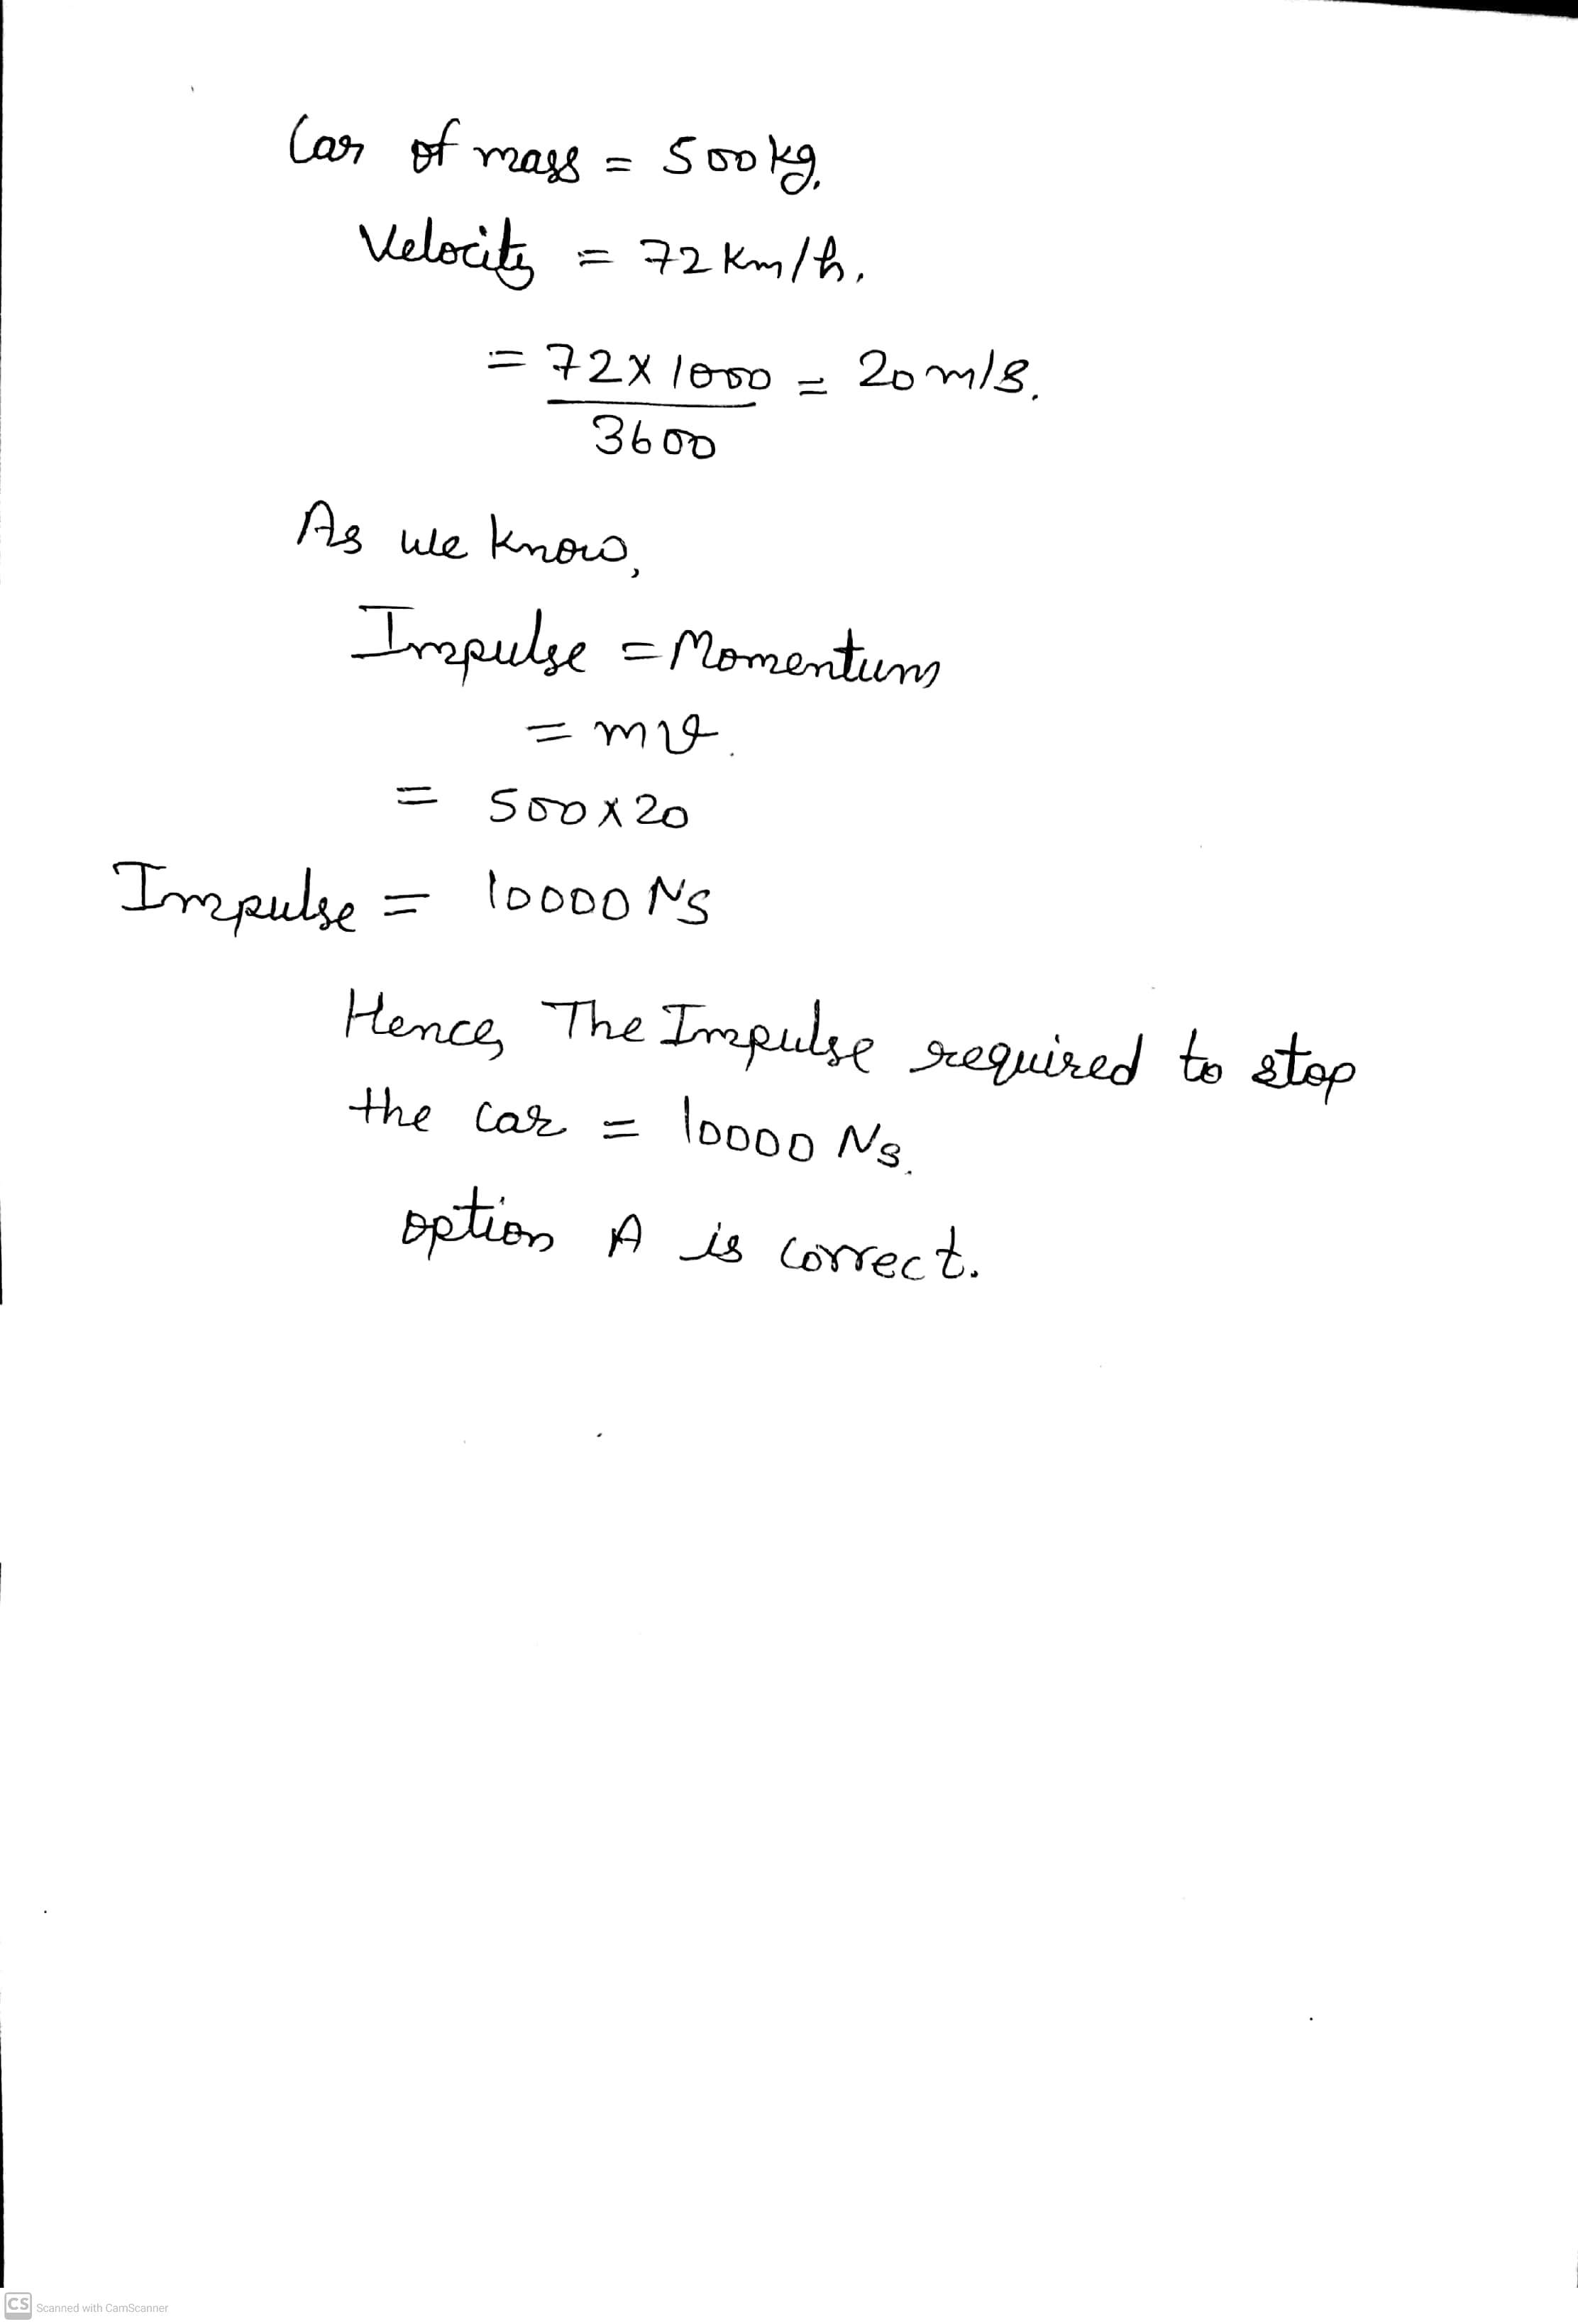 Car of mass = 500 kg.
Velocity = 72 Km/h.
= 72 x 1000 = 20 m/s.
3600
As we know,
Impulse = Momentum
= mv.
= 500 x 20
Impulse = 10000 NS
Hence, The Impulse required to stop
the car = 10000 Ns.
option A is correct.
CS Scanned with CamScanner